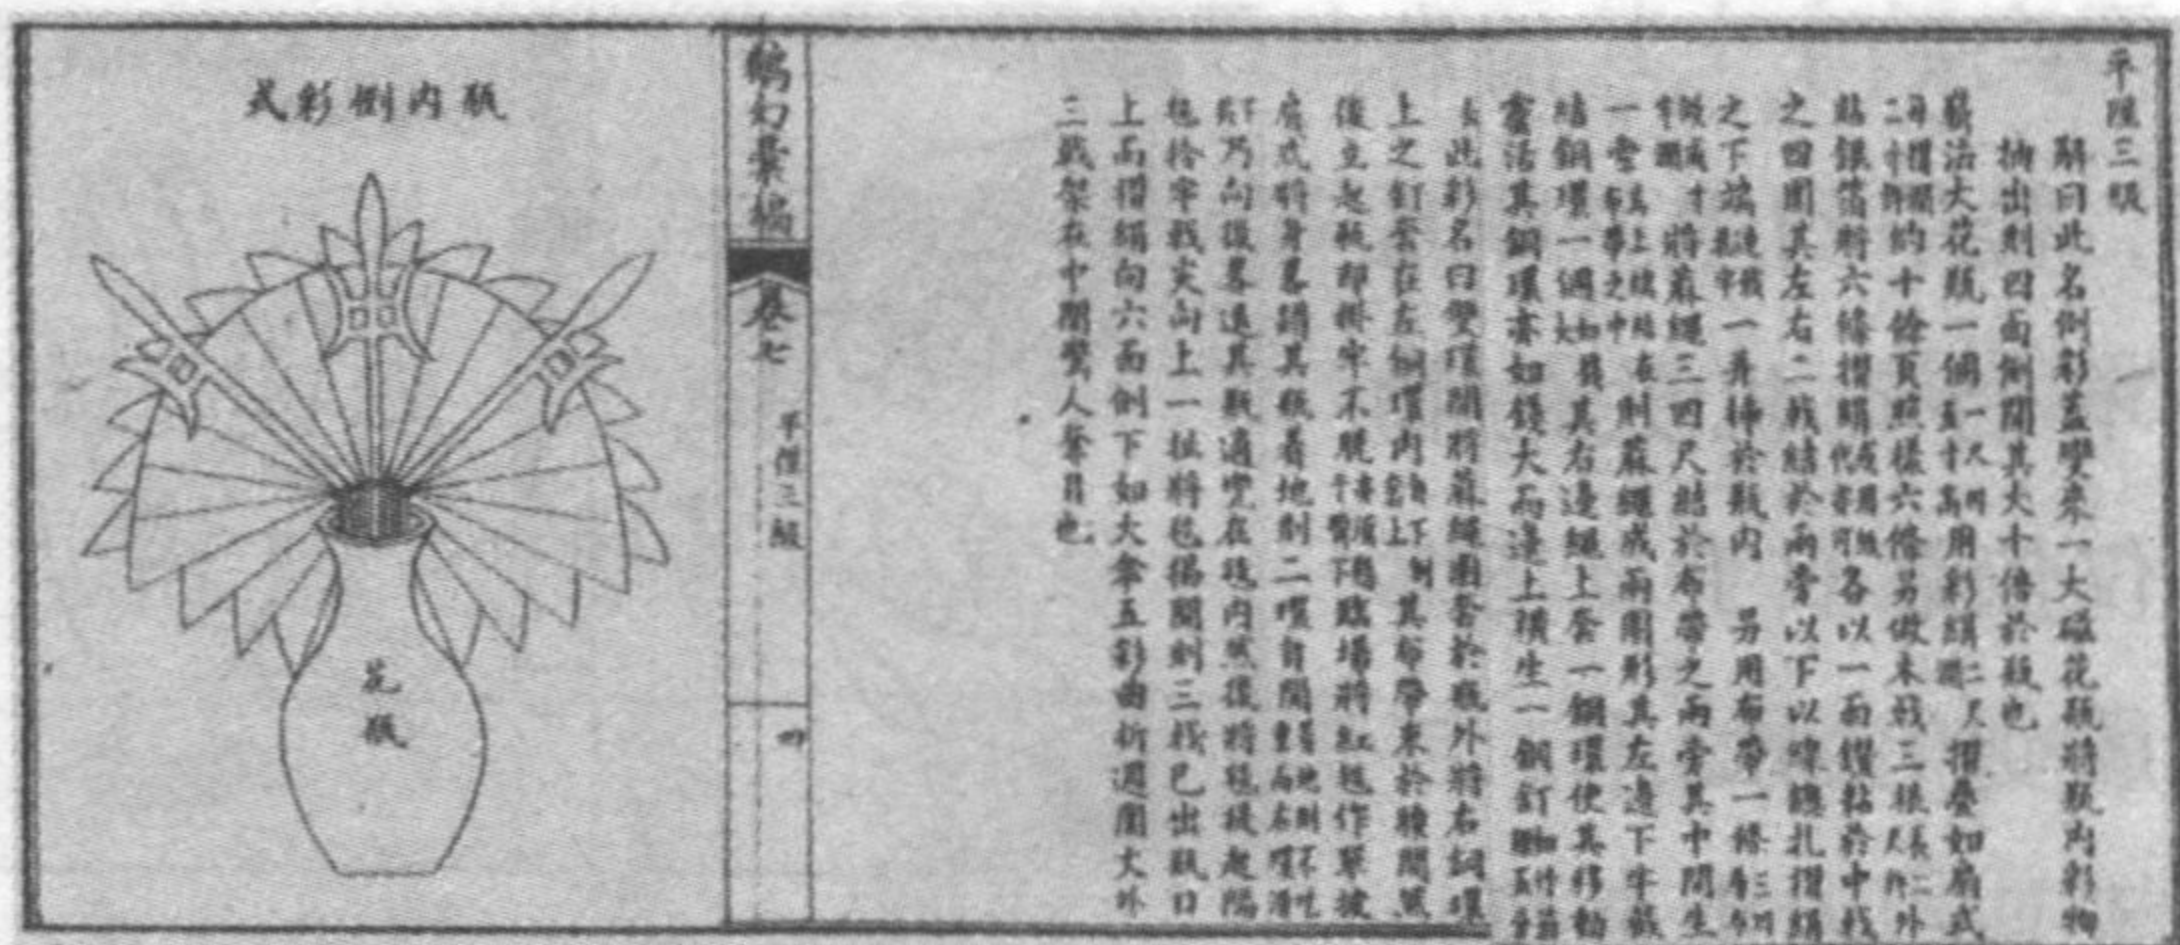 平陞三級
解曰此名倒彩蓋變來一大磁花瓶將瓶內彩物
抽出則四面倒開其大十倍於瓶也
製法大花瓶一個用彩絹摺疊如扇式
每摺闊二寸許約十餘頁照樣六條另做木戟三根長二尺許外
貼銀箔將六條摺絹各以一面僅粘於中戟
之四圍其左右二戟結於兩旁以下以線纏扎摺絹
之下端一并插於瓶內 另用布帶一條
將麻繩三四尺結於布帶之兩旁其中間生
一則麻繩成兩圈形其左邊下半截
結銅環一個其右邊繩上套一銅環使其移動
靈活其銅環亦如錢大而邊上橫生一銅釘
此彩名曰雙環開將麻繩圈套於瓶外將右銅環
上之釘套在左銅環內其布帶束於腰間然
後立起瓶即掛牢不脫臨場將紅毯作單披
肩式將身畧蹲其瓶着地則二環自開
釘乃向後畧退其瓶適兜在毯內然後將毯提起隔
毯拾牢戟尖向上一扯將毯揭開則三戟已出瓶口
上而摺絹向六面倒下如大傘五彩曲折週圍大外
三戟架在中間變人奪目也
鵝幻彙編 卷七 平陞三級 四
瓶內倒彩式
花瓶